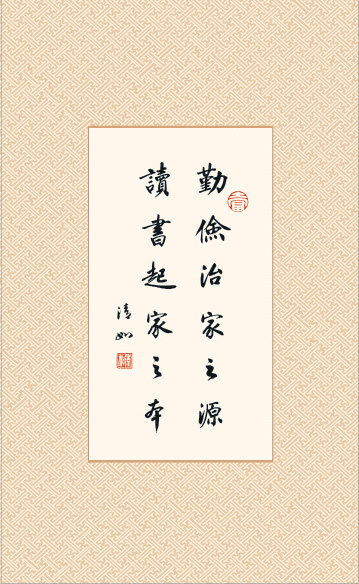 勤儉治家之源
讀書起家之本
清如